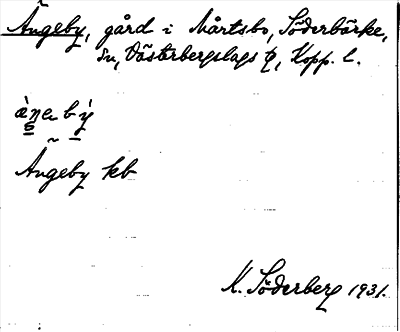 Ängeby, gård i Mårtsbo, Söderbärke,
sn, Västerbergslags tg, Kopp. l.
Ängeby kb
K. Söderberg 1931.